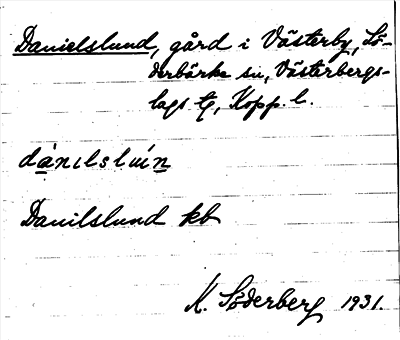 Danielslund, gård i Västerby, Sö-
derbärke sn, Västerbergs-
lags tg, Kopp. l.
dànɪlsluín
Danilslund kb
K. Söderberg 1931.